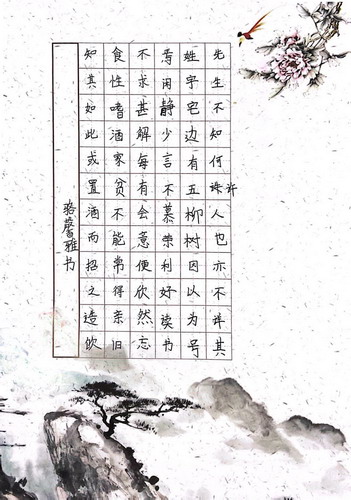 先生不知何许人也亦不详其
姓字宅边有五柳树因以为号
焉闲静少言不慕荣利好读书
不求甚解每有会意便欣然忘
食性嗜酒家贫不能常得亲旧
知其如此或置酒而招之造饮
骆馨雅书